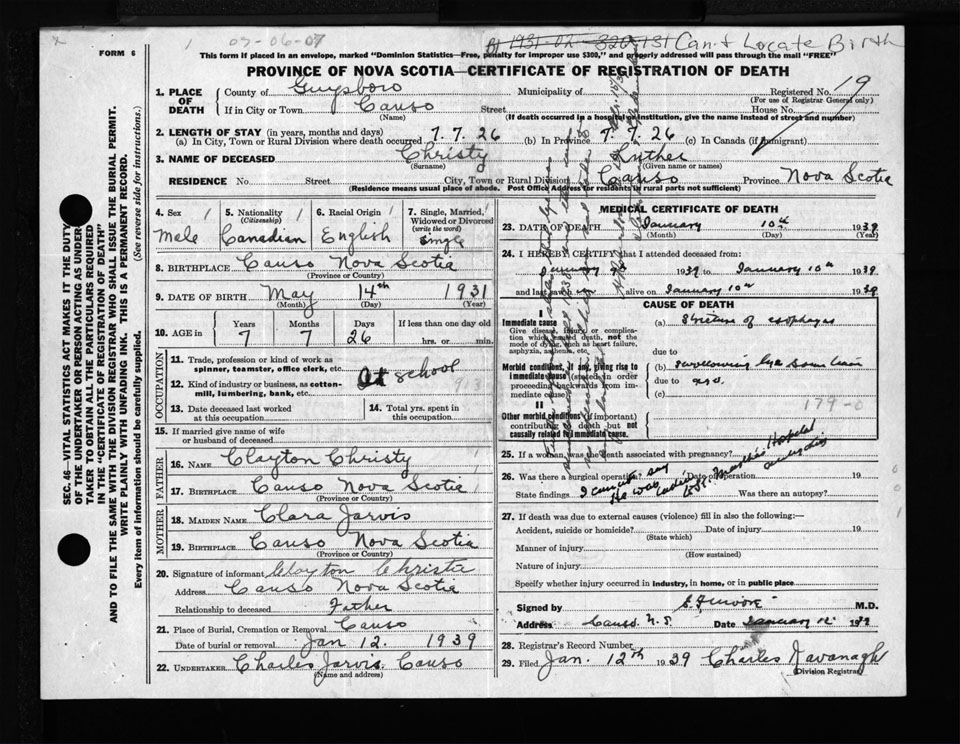 FORM 6
07-06-07
Can't Locate Birth
This form if placed in an envelope, marked "Dominion Statistics—Free, penalty for improper use $300," and properly addressed will pass through the mail "FREE"
PROVINCE OF NOVA SCOTIA—CERTIFICATE OF REGISTRATION OF DEATH
1. PLACE OF DEATH
County of Guysboro Municipality of Registered No. 19
(For use of Registrar General only)
If in City or Town Canso Street House No.
(Name) (If death occurred in a hospital or institution, give the name instead of street and number)
2. LENGTH OF STAY (in years, months and days)
(a) In City, Town or Rural Division where death occurred 7. 7. 26 (b) In Province 7. 7. 26 (c) In Canada (if immigrant)
3. NAME OF DECEASED Christy Luther
(Surname) (Given name or names)
RESIDENCE No. Street City, Town or Rural Division Canso Province Nova Scotia
(Residence means usual place of abode. Post Office Address for residents in rural parts not sufficient)
4. Sex Male
5. Nationality (Citizenship) Canadian
6. Racial Origin English
7. Single, Married, Widowed or Divorced (write the word) Single
8. BIRTHPLACE Canso Nova Scotia
(Province or Country)
9. DATE OF BIRTH May 14th 1931
(Month) (Day) (Year)
10. AGE in Years Months Days If less than one day old
7 7 26 hrs. or min.
OCCUPATION
11. Trade, profession or kind of work as spinner, teamster, office clerk, etc.
At school
12. Kind of industry or business, as cotton-mill, lumbering, bank, etc.
13. Date deceased last worked at this occupation
14. Total yrs. spent in this occupation
15. If married give name of wife or husband of deceased
FATHER
16. NAME Clayton Christy
17. BIRTHPLACE Canso Nova Scotia
(Province or Country)
MOTHER
18. MAIDEN NAME Clara Jarvis
19. BIRTHPLACE Canso Nova Scotia
(Province or Country)
20. Signature of informant Clayton Christie
Address Canso Nova Scotia
Relationship to deceased Father
21. Place of Burial, Cremation or Removal Canso
Date of burial or removal Jan 12. 1939
22. UNDERTAKER Charles Jarvis. Canso
(Name and address)
MEDICAL CERTIFICATE OF DEATH
23. DATE OF DEATH January 10th 1939
(Month) (Day) (Year)
24. I HEREBY CERTIFY that I attended deceased from:
January 1939 to January 10th 1939
and last saw alive on January 10th 1939
CAUSE OF DEATH
I
Immediate cause
Give disease, injury or complication which caused death, not the mode of dying, such as heart failure, asphyxia, asthenia, etc.
(a) Stricture of esophagus
due to
Morbid conditions, if any, giving rise to immediate cause (stated in order proceeding backwards from immediate cause)
(b) Swallowing lye some time
due to ago.
(c)
179-0
II
Other morbid conditions (if important) contributing to death but not causally related to immediate cause.
25. If a woman, was the death associated with pregnancy?
26. Was there a surgical operation? Date of operation 19
I cannot say
He was St. Martha's Hospital
State findings Was there an autopsy?
27. If death was due to external causes (violence) fill in also the following:—
Accident, suicide or homicide? Date of injury 19
(State which)
Manner of injury
(How sustained)
Nature of injury
Specify whether injury occurred in industry, in home, or in public place
Signed by M.D.
Address Canso N.S. Date January 12 1939
28. Registrar's Record Number
29. Filed Jan. 12th 1939 Charles Kavanagh
(Division Registrar)
SEC. 46—VITAL STATISTICS ACT MAKES IT THE DUTY
OF THE UNDERTAKER OR PERSON ACTING AS UNDER-
TAKER TO OBTAIN ALL THE PARTICULARS REQUIRED
IN THE "CERTIFICATE OF REGISTRATION OF DEATH"
AND TO FILE THE SAME WITH THE DIVISION REGISTRAR WHO SHALL ISSUE THE BURIAL PERMIT.
WRITE PLAINLY WITH UNFADING INK. THIS IS A PERMANENT RECORD.
Every item of information should be carefully supplied. (See reverse side for instructions.)